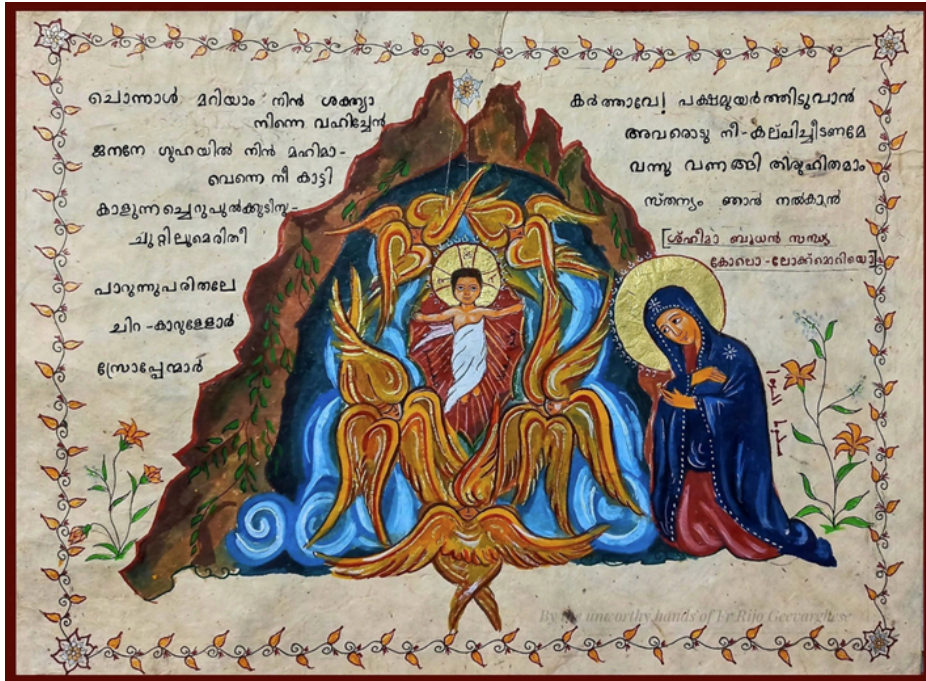 ചൊന്നാൾ മറിയാം നിൻ ശക്ത്യാ
നിന്നെ വഹിച്ചേൻ
ജനനേ ഗുഹയിൽ നിൻ മഹിമാ-
വെന്നെ നീ കാട്ടി
കാളുന്നച്ചെറുപുൽക്കുടിനു-
ചുറ്റിലുമെരിതീ
പാറുന്നുപരിതലേ
ചിറ-കാറുള്ളോർ
സ്രോപ്പേന്മാർ
കർത്താവേ! പക്ഷമുയർത്തിടുവാൻ
അവരൊടു നീ-കല്പിച്ചീടണമേ
വന്നു വണങ്ങി തിരുഹിതമാം
സ്തന്യം ഞാൻ നൽകുവൻ
[ശ്ഹീമാ ബുധൻ സന്ധ്യ
കോലൊ-ലോക്ക്മെറിയൊ]
By the unworthy hands of Fr Rijo Geevarghese